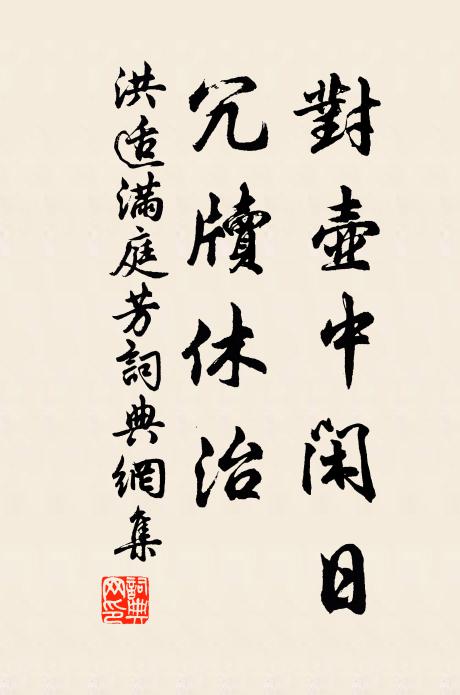 對壺中閑日
冗牘休治
洪适滿庭芳詞典網集
詞典網印